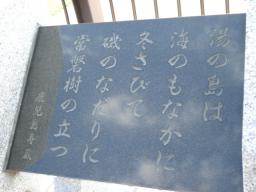 湯の島は
海のもなかに
冬さびて
磯のなだりに
常磐樹の立つ
鹿児島寿蔵